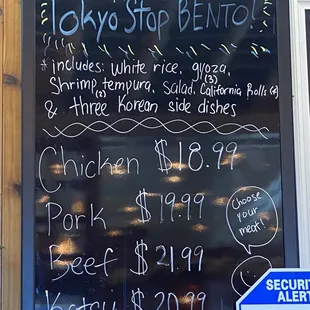 Tokyo Stop BENTO!
* includes: White rice, gyoza,
(3)
Shrimp tempura, Salad, California Rolls (4)
(2)
& three Korean side dishes
Chicken $18.99
Pork $19.99
Beef $21.99
Katsu $20.99
Choose
your
meat!
SECURITY
ALERT